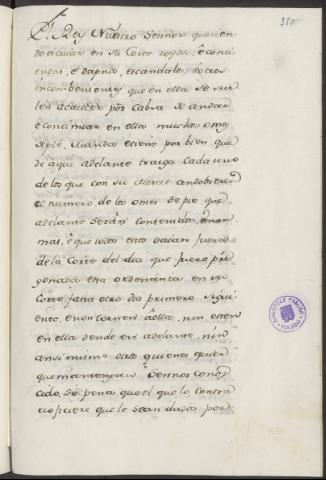 350
El Rey Nuestro Sennor querien
do escusar en su Corte roydos, é conti
endas, é dapnos, escandalos, é otros
incombenientes que en ella se sue
len acaescer por cabsa de andar
é continuar en ella muchos omes
de pie, manda e tiene por bien que
de aqui adelante traiga cada uno
de los que con su Merced andobieren
el numero de los omes de pie que
adelante serán contenidos, é non
mas, é que todos estos vaian fuera
de la Corte del dia que fuere pre
gonada esta ordenanza en su
Corte fasta otro dia primero sigui
ente, é non tornen á ella, nin esten
en ella dende en adelante, nin
ansimismo otro quienes quier
que mantengan Sennor cono
cido, so pena que el que lo contra
rio ficiere que le sean dados por
BIBLIOTECA PUBLICA
TOLEDO